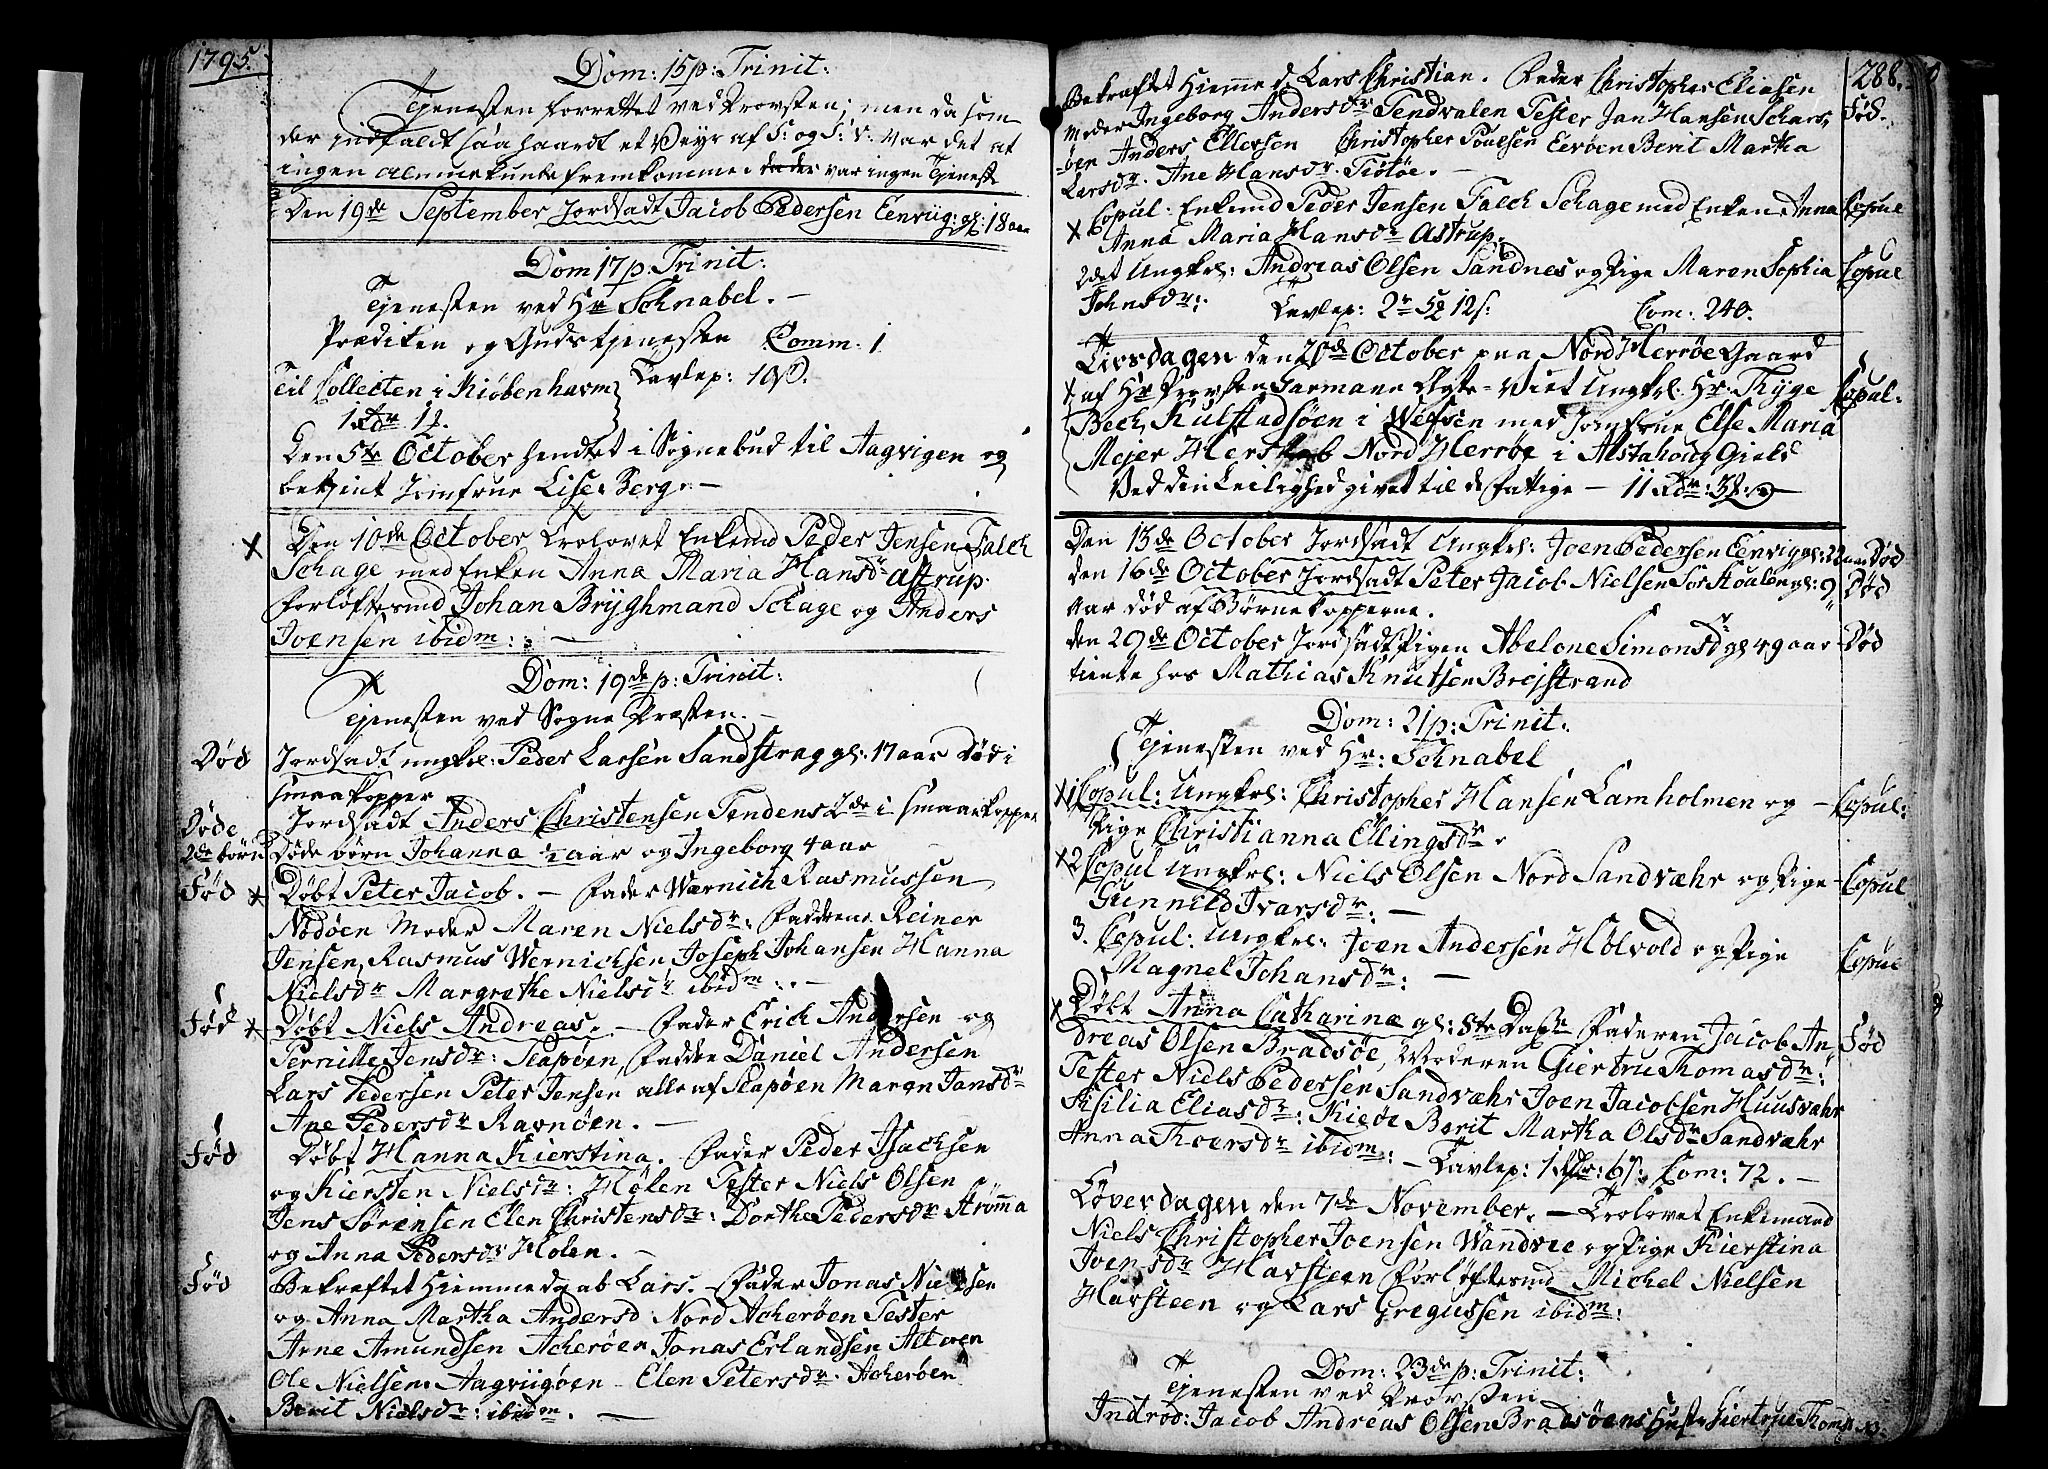 1795.
Dom: 15 p: Trinit:
Tjenesten forrettet ved Provsten; men da som
der indfaldt saa haardt et Veyr af S: og S: V. var det at
ingen Almue kunde fremkomme var ingen Tjeneste
Den 19de September Jordfæstet Jacob Pedersen gl: 18 aar
Dom 17 p: Trinit:
Tjenesten ved Hr Schnabel. —
Prædiken og Gudstjenesten Comm: 1
Til Collecten i Kiøbenhavn Tavlep: 10 s.
1 Rdr 1
Den 5te October hendtet i Sognebud til Aagvigen og
betjent Jomfrue Lise Berg. —
x Den 10de October Trolovet Enkemd Peder Jensen Falch
Schage med Enken Anna Maria Hansdr Astrup.
Forløftesmd Johan Bryghmand Schage og Anders
Joensen ibidm: —
Dom: 19de p: Trinit:
Tjenesten ved Sogne Præsten. —
Død Jordfæstet ungkrl: Peder Larsen Sandstrag gl: 17 aar Død i
smaakopper
Døde Jordfæstet Anders Christensen Tendens 2de i smaakopper
2de børn Døde børn Johanna ½ aar og Ingeborg 4 aar
Fød x Døbt Peter Jacob. — Fader Wærnich Rasmussen
Nødøen Moder Maren Nielsdr: Fadderne Reiner
Jensen, Rasmus Wernichsen Joseph Johansen Hanna
Nielsdr Margrethe Nielsdr ibidm: —
Fød x Døbt Niels Andreas. — Fader Erich Andersen og
Pernille Jensdr: Slapøen, Faddre Daniel Andersen
Lars Pedersen Peter Jensen alle af Slapøen Maren Jansdr
Ane Pedersdr Ravnøen. —
Fød Døbt Hanna Kierstina. Fader Peder Isachsen
og Kiersten Nielsdr: Hølen Tester Niels Olsen
Jens Sørensen Elen Christensdr: Dorthe Pedersdr Strømma
og Anna Pedersdr Holen. —
Fød Bekræftet Hiemmedaab Lars. — Fader Jonas Nielsen
og Anna Martha Andersd Nord Acherøen Tester
Arne Amundsen Acherøen Jonas Erlandsen Altøen
Ole Nielsen Aagviigøen — Elen Petersdr. Acherøen
Berit Nielsdr: ibidm. —
288.
Bekræftet Hiemmed. Lars Christian. Fader Christopher Eliasen
Moder Ingeborg Andersdr Tendvalen Tester Jan Hansen Skars, Fød.
øen Anders Ellersen Christopher Poulsen Eerøen Berit Martha
Larsdr. Ane Hansdr. Tiøtøe. —
x Copul: Enkemd Peder Jensen Falch Schage med Enken Anna Copul
Anna Maria Hansdr Astrup.
2det Ungkrl: Andreas Olsen Sandnes og Pige Maren Sophia Copul
Johnsdr: Tavlep: 2 r 5 12 s: Com: 240.
Tirsdagen den 20de October paa Nord Herrøe Gaard
x af Hr Provsten Garmann Ægte-viet Ungkrl. Hr. Thyge Copul:
Bech, Kulstadsøen i Wefsen med Jomfrue Else Maria
Mejer Nord Herrøe i Alstahoug Gield
Ved den Leilighed givet til de fattige — 11 Rdr: 3
Den 13de October Jordfæstet Ungkrl: Joen Pedersen gl: 22 aar Død
den 16de October Jordfæstet Peter Jacob Nielsen gl: 9 Død
aar død af Børnekopperne.
den 29de October Jordfæstet Pigen Abelone Simonsdr gl 49 aar Død
tiente hos Mathias Knutsen Brejstrand
Dom: 21 p: Trinit:
Tjenesten ved Hr: Schnabel
x 1 Copul: Ungkrl: Christopher Hansen Lamholmen og — Copul:
Pige Christianna Ellingsdr.
x 2 Copul Ungkrl: Niels Olsen Nord Sandvæhr og Pige — Copul
Gunnild Ivarsdr: —
3. Copul: Ungkrl: Joen Andersen Holvold og Pige Copul
Magnel Johansdr: —
x Døbt Anna Catharinæ gl: 8te Dage Faderen Jacob An- Fød
dreas Olsen Bradsøe, Moderen Giertru Thomasdr:
Tester Niels Pedersen Sandvæhr Joen Jacobsen Huusvæhr
Sisilia Eliasdr: Kieøe Berit Martha Olsdr Sandvæhr
Anna Thoersdr ibidm: — Tavlep: 1 Com: 72. —
Løverdagen den 7de November. — Trolovet Enkemand
Niels Christopher Joensen Wandvee og Pige Kierstina
Joensdr Harsteen Forløftesmd Michel Nielsen
Harsteen og Lars Gregussen ibidm:
Dom: 23de p: Trinit:
Tjenesten ved Provsten
Introd: Jacob Andreas Olsen Bradsøens Hustr Giertrue Thom